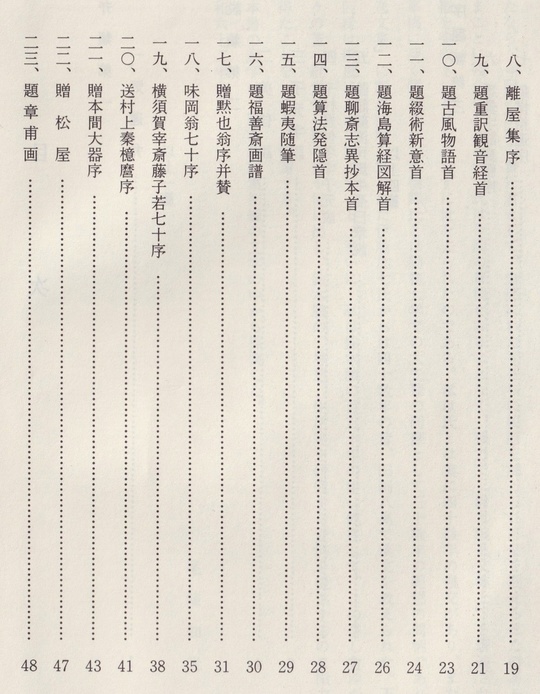 八、離屋集序 19
九、題重訳観音経首 21
一〇、題古風物語首 23
一一、題綴術新意首 24
一二、題海島算経図解首 26
一三、題聊斎志異抄本首 27
一四、題算法発隠首 28
一五、題蝦夷随筆 29
一六、題福善斎画譜 30
一七、贈黙也翁序并賛 31
一八、味岡翁七十序 35
一九、横須賀宰斎藤子若七十序 38
二〇、送村上秦檍麿序 41
二一、贈本間大器序 43
二二、贈松屋 47
二三、題章甫画 48